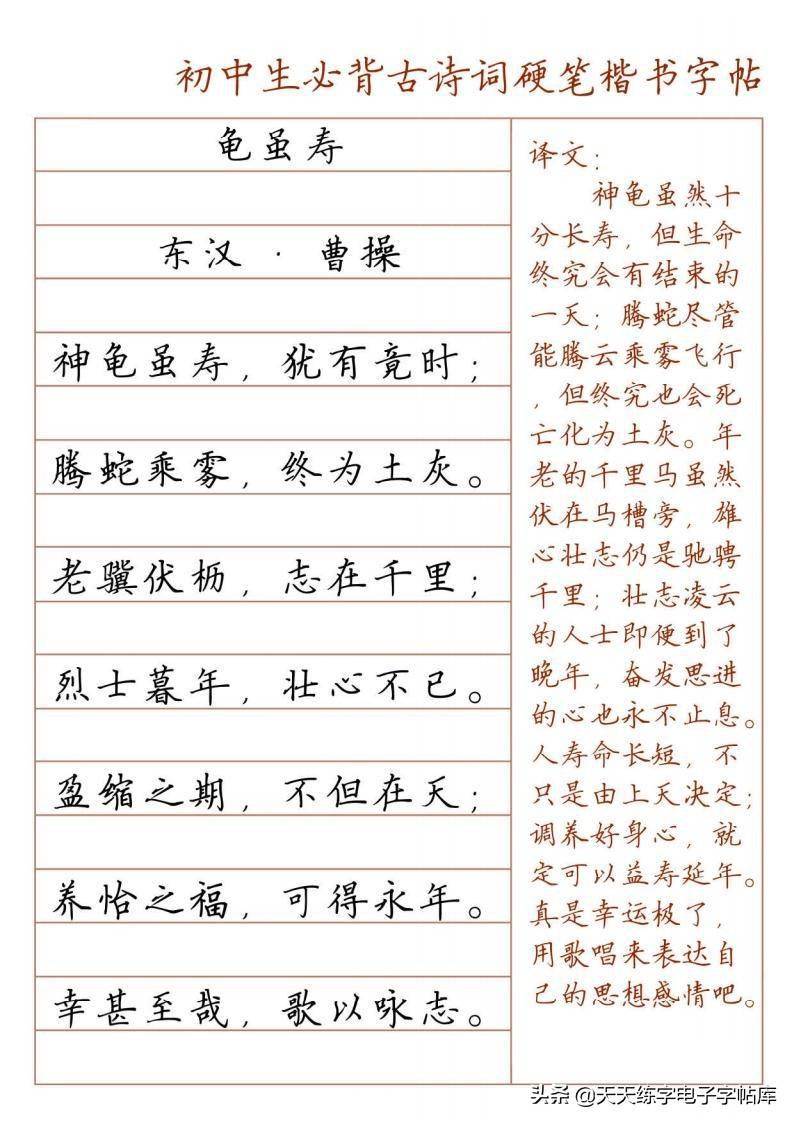 初中生必背古诗词硬笔楷书字帖
龟虽寿
东汉 · 曹操
神龟虽寿，犹有竟时；
腾蛇乘雾，终为土灰。
老骥伏枥，志在千里；
烈士暮年，壮心不已。
盈缩之期，不但在天；
养怡之福，可得永年。
幸甚至哉，歌以咏志。
译文：
神龟虽然十
分长寿，但生命
终究会有结束的
一天；腾蛇尽管
能腾云乘雾飞行
，但终究也会死
亡化为土灰。年
老的千里马虽然
伏在马槽旁，雄
心壮志仍是驰骋
千里；壮志凌云
的人士即便到了
晚年，奋发思进
的心也永不止息。
人寿命长短，不
只是由上天决定；
调养好身心，就
定可以益寿延年。
真是幸运极了，
用歌唱来表达自
己的思想感情吧。
头条 @天天练字电子字帖库